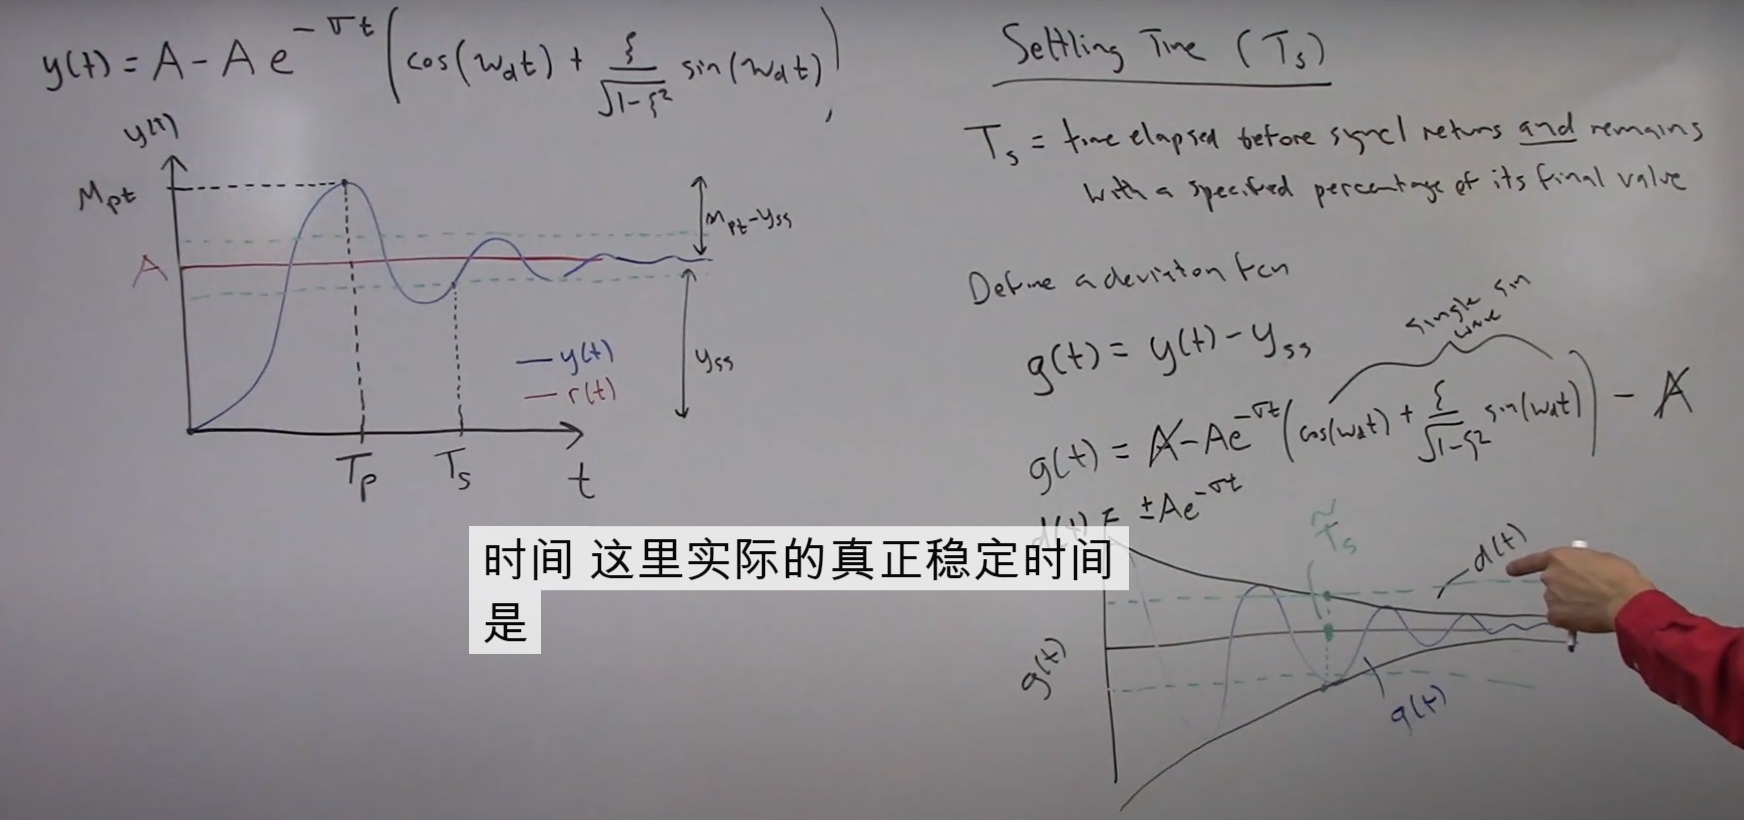 y(t) = A - A e^{-σt} (cos(w_d t) + ξ/√(1-ξ²) sin(w_d t)),
y(t)
M_pt
A
M_pt - y_ss
y_ss
— y(t)
— r(t)
T_p
T_s
t
Settling Time (T_s)
T_s = time elapsed before signal returns and remains
with a specified percentage of its final value
Define a deviation fcn
single sin
wave
g(t) = y(t) - y_ss
g(t) = A - Ae^{-σt} (cos(w_d t) + ξ/√(1-ξ²) sin(w_d t)) - A
d(t) = ± Ae^{-σt}
T̃_s
d(t)
g(t)
g(t)
时间 这里实际的真正稳定时间
是